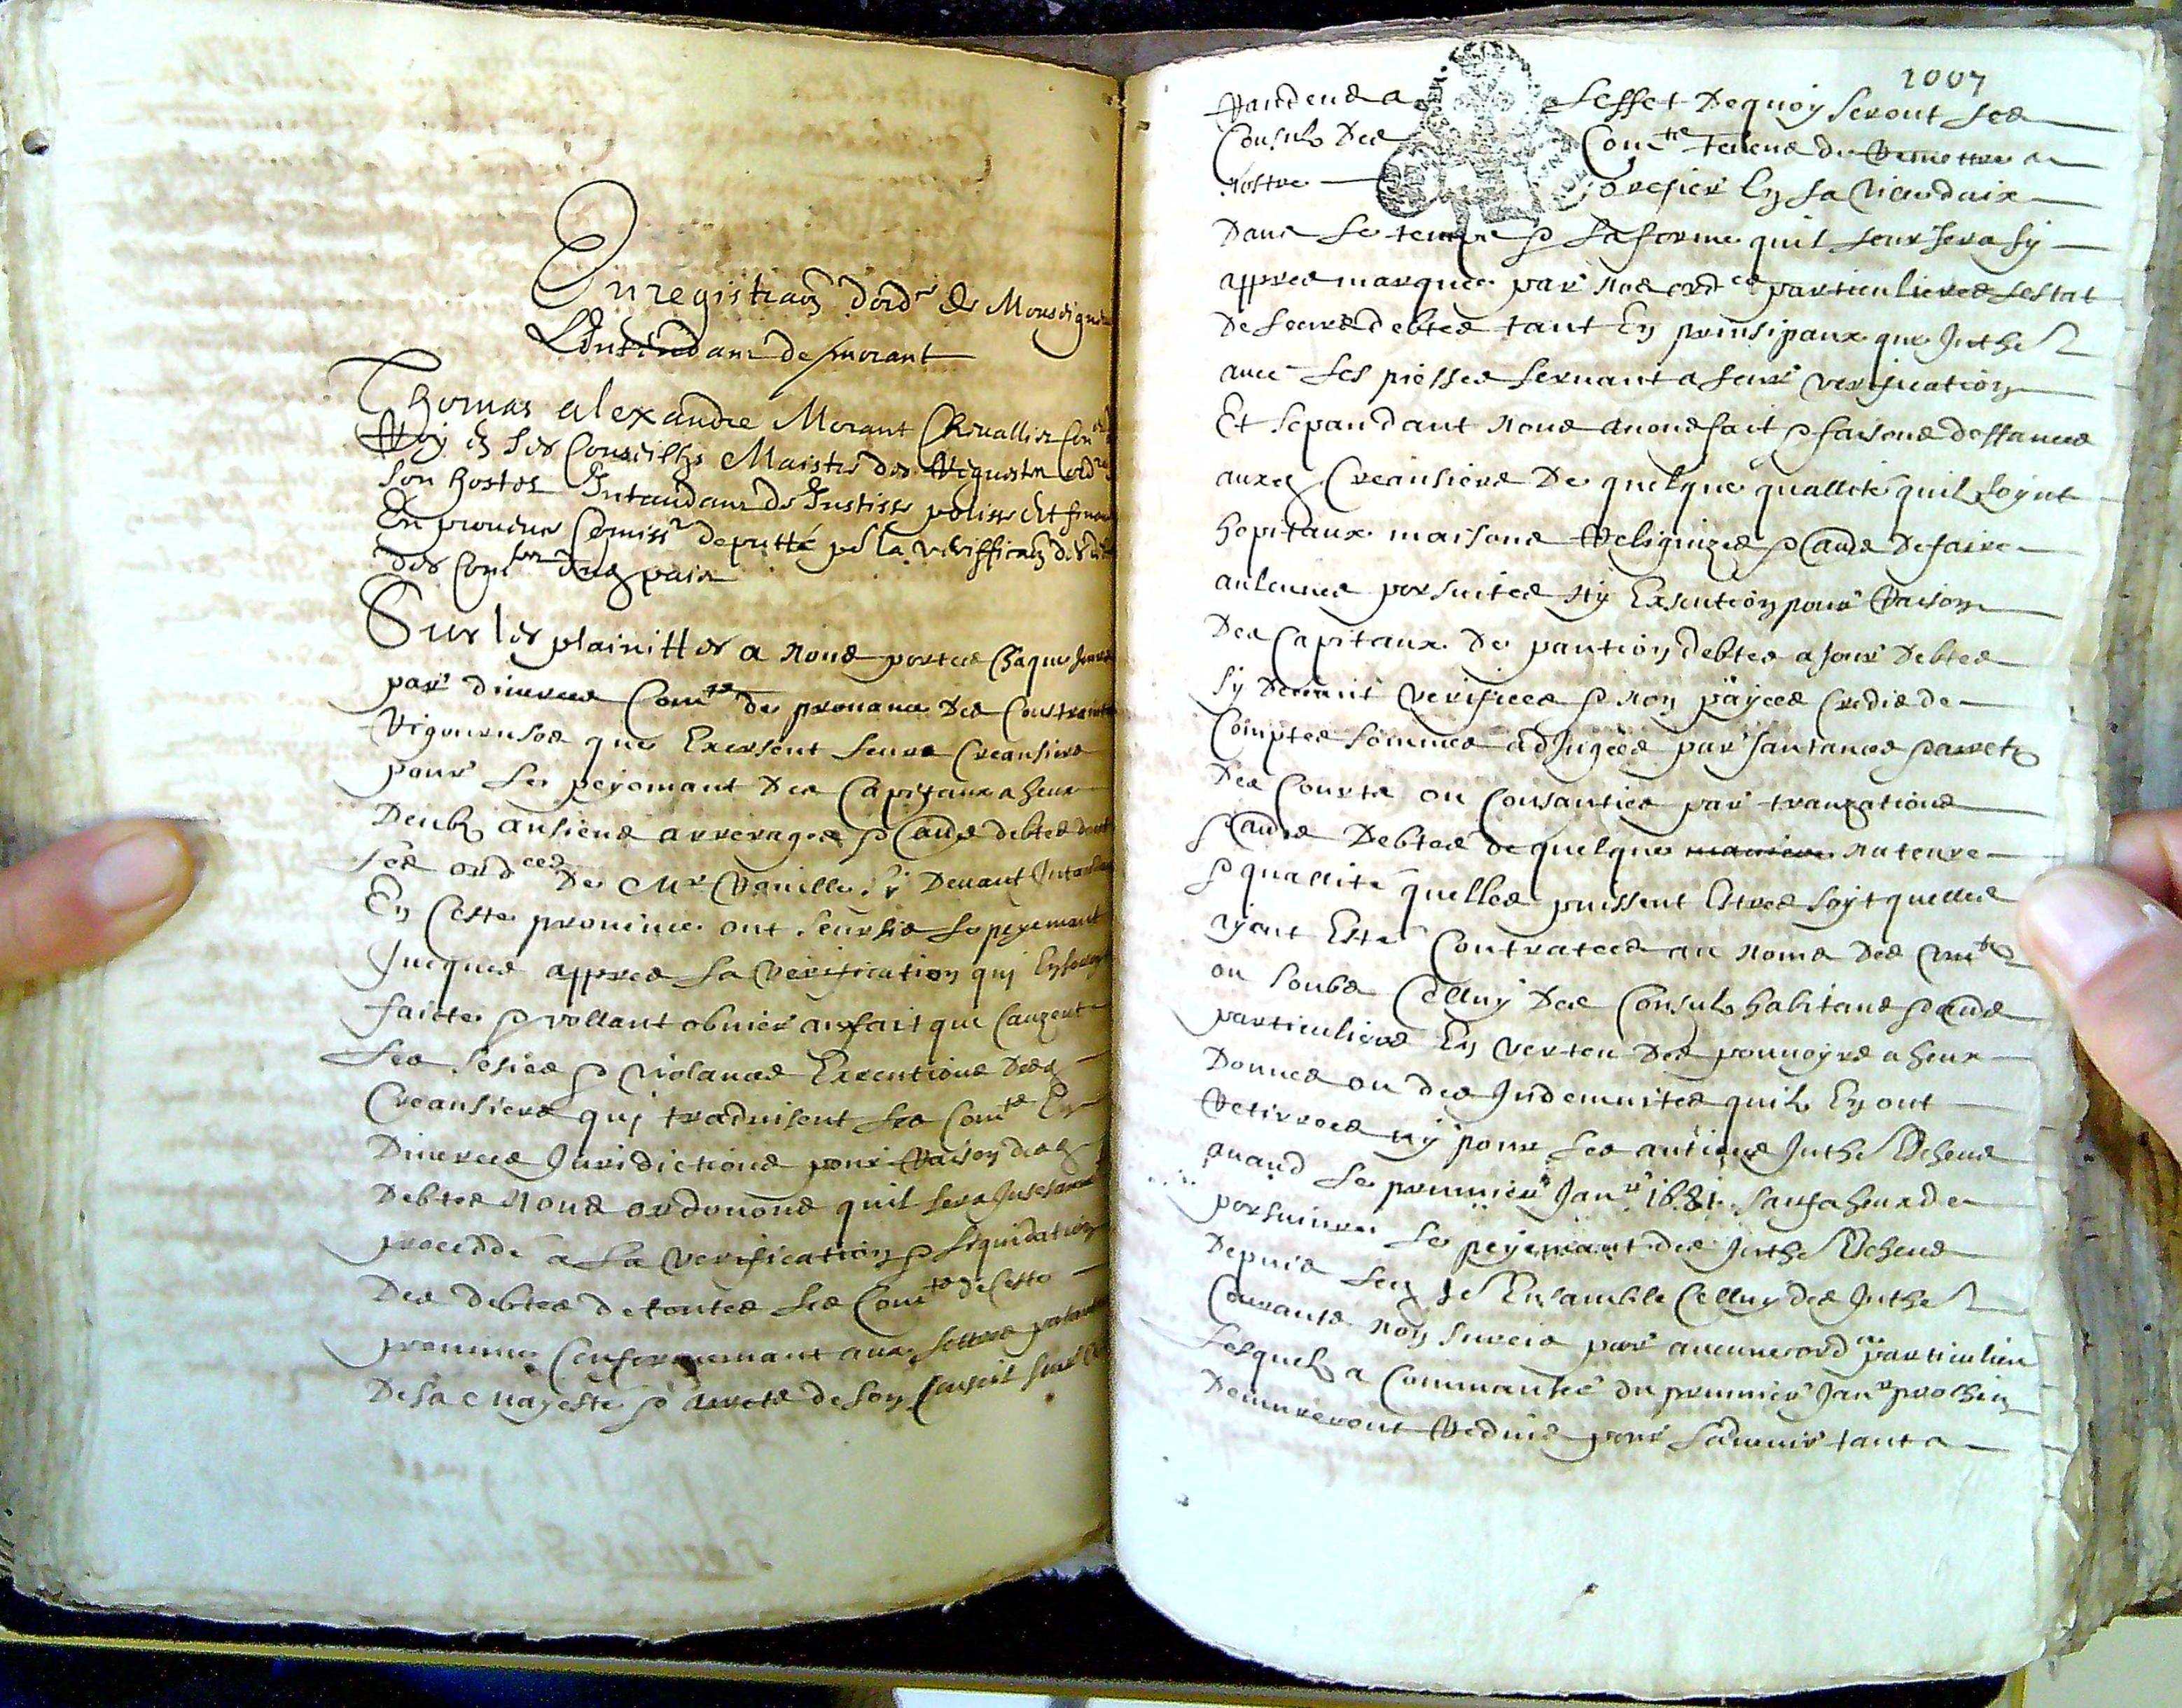 Enregistraon dord^e de Monseigneur
Lintandant de morant
Thomas alexandre Morant Chevallier Con^er du
Roy en ses Conseilhs Maistre des Requestes ord^re de
son hostel Intandant de Justisse polisse Et finances
En provence Comiss^re deputté p^r la verifficaon des debtes
des Com^tes dud pais
Sur les plainttes a Nous portees chaque jour
par diverses Com^tes de provance des Contraintes
Rigoureuses que Exersent leurs Creansiers
pour le peyemant des Capitaux a heux
Deubz ansiens arrerages & au^s debtes dont
les ord^ces De M^r Rouille sy Devant Intandant
En Ceste province ont surssis le peyemant
Jucques appres la verification quj En seroyt
faicte & vollant obvier au fait que Causent
les sesies & violances Exsecutions desd
Creansiers quj traduisent les Com^tes En
Diverses Juridictions pour Raison desd
Debtes Nous ordonons quil sera Incesament
procedde a la verification & liquidation
Des debtes de toutes les Com^tes de Ceste
province Conformemant aux lettres patantes
De sa Majeste & arrets de son Conseil sur Ce
1007
Randeus a leffet De quoy seront les
Consuls Des Com^tes tenens de Remettre a
Nostre grefier En sa Residaix
Dans le temps & la forme quil leur sera sy
appres marquee par Nos ord^ces particulieres lestat
De leurs debtes tant En prinsipaux que Inthe^ts
avec les piesses servant a leur verification
Et sepandant Nous avons fait & faisons deffances
auxd Creansiers De quelque quallite quilz soynt
hopitaux maisons Religiuzes & au^s De faire
aulcunes porsuites Ny Exsecution pour Raison
Des Capitaux De pantion debtes a jour Debtes
sy Devant verifiees & Non payees Credis de
Comptes sommes adjugees par santances & arrets
Des Courts ou Consanties par tranzations
& au^s Debtes de quelque nateure
& quallite quelles puissent Estres soyt quelles
ayent Este Contratees au Noms Des Com^tes
ou soubs Celluy Des Consuls habitans & au^s
particuliers En verteu Des pouvoyrs a heux
Donnes ou des Indemnites quilz En ont
Retirees ny pour les antiens Inthe^ts Echeus
avand le premier Jan^er 1681 sauf a heux de
porsuivre le peyemant des Inthe^ts Echeus
Depuis Ensamble Celluy des Inthe^ts
Courants Non surcis par aucune ord^ce particuliere
Lesquels a Commanser du premier Jan^er prochin
Demureront Reduis pour l'advenir tant a